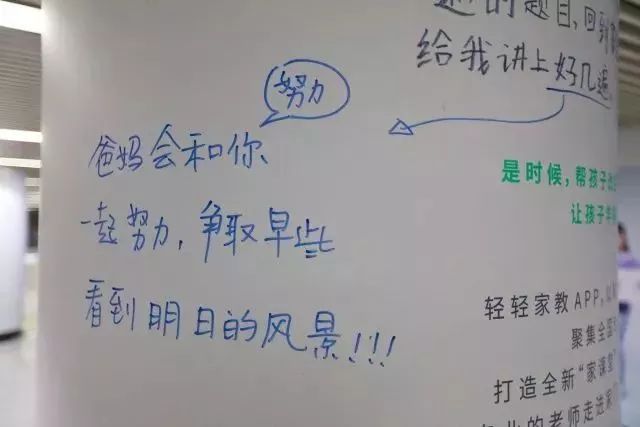 题目,回到
给我讲上好几遍
努力
爸妈会和你、
一起努力,争取早些
看到明日的风景!!!
是时候,帮孩子
让孩子
轻轻家教APP,
聚集全国
打造全新“家课堂
的老师走进家